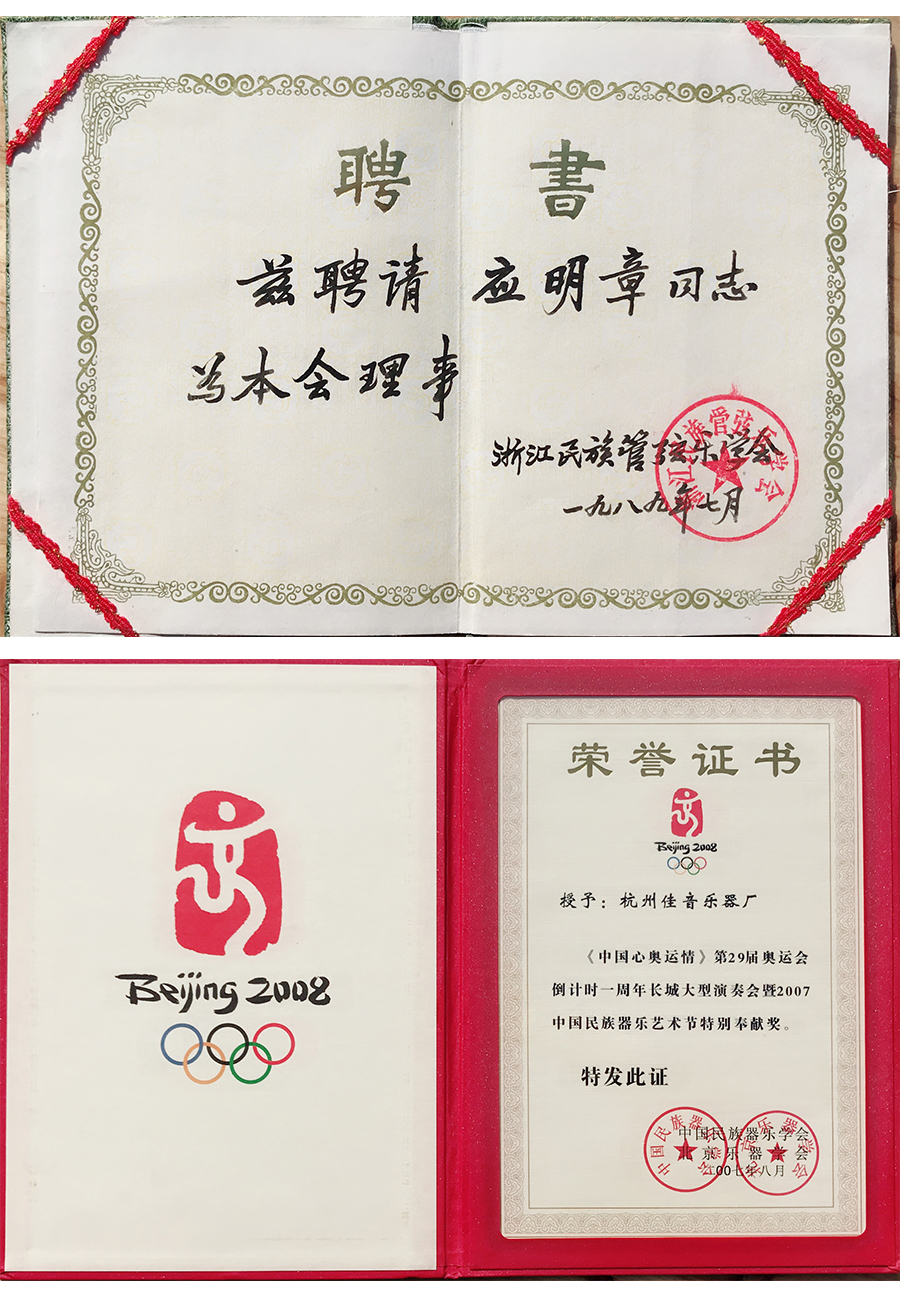 聘書
兹聘请 应明章同志
为本会理事
浙江民族管弦乐学会
一九八九年七月
浙江民族管弦乐学会
Beijing 2008
荣誉证书
Beijing 2008
授予：杭州佳音乐器厂
《中国心奥运情》第29届奥运会
倒计时一周年长城大型演奏会暨2007
中国民族器乐艺术节特别奉献奖。
特发此证
中国民族器乐学会
北京乐器学会
二00七年八月
中国民族器乐学会
北京乐器学会